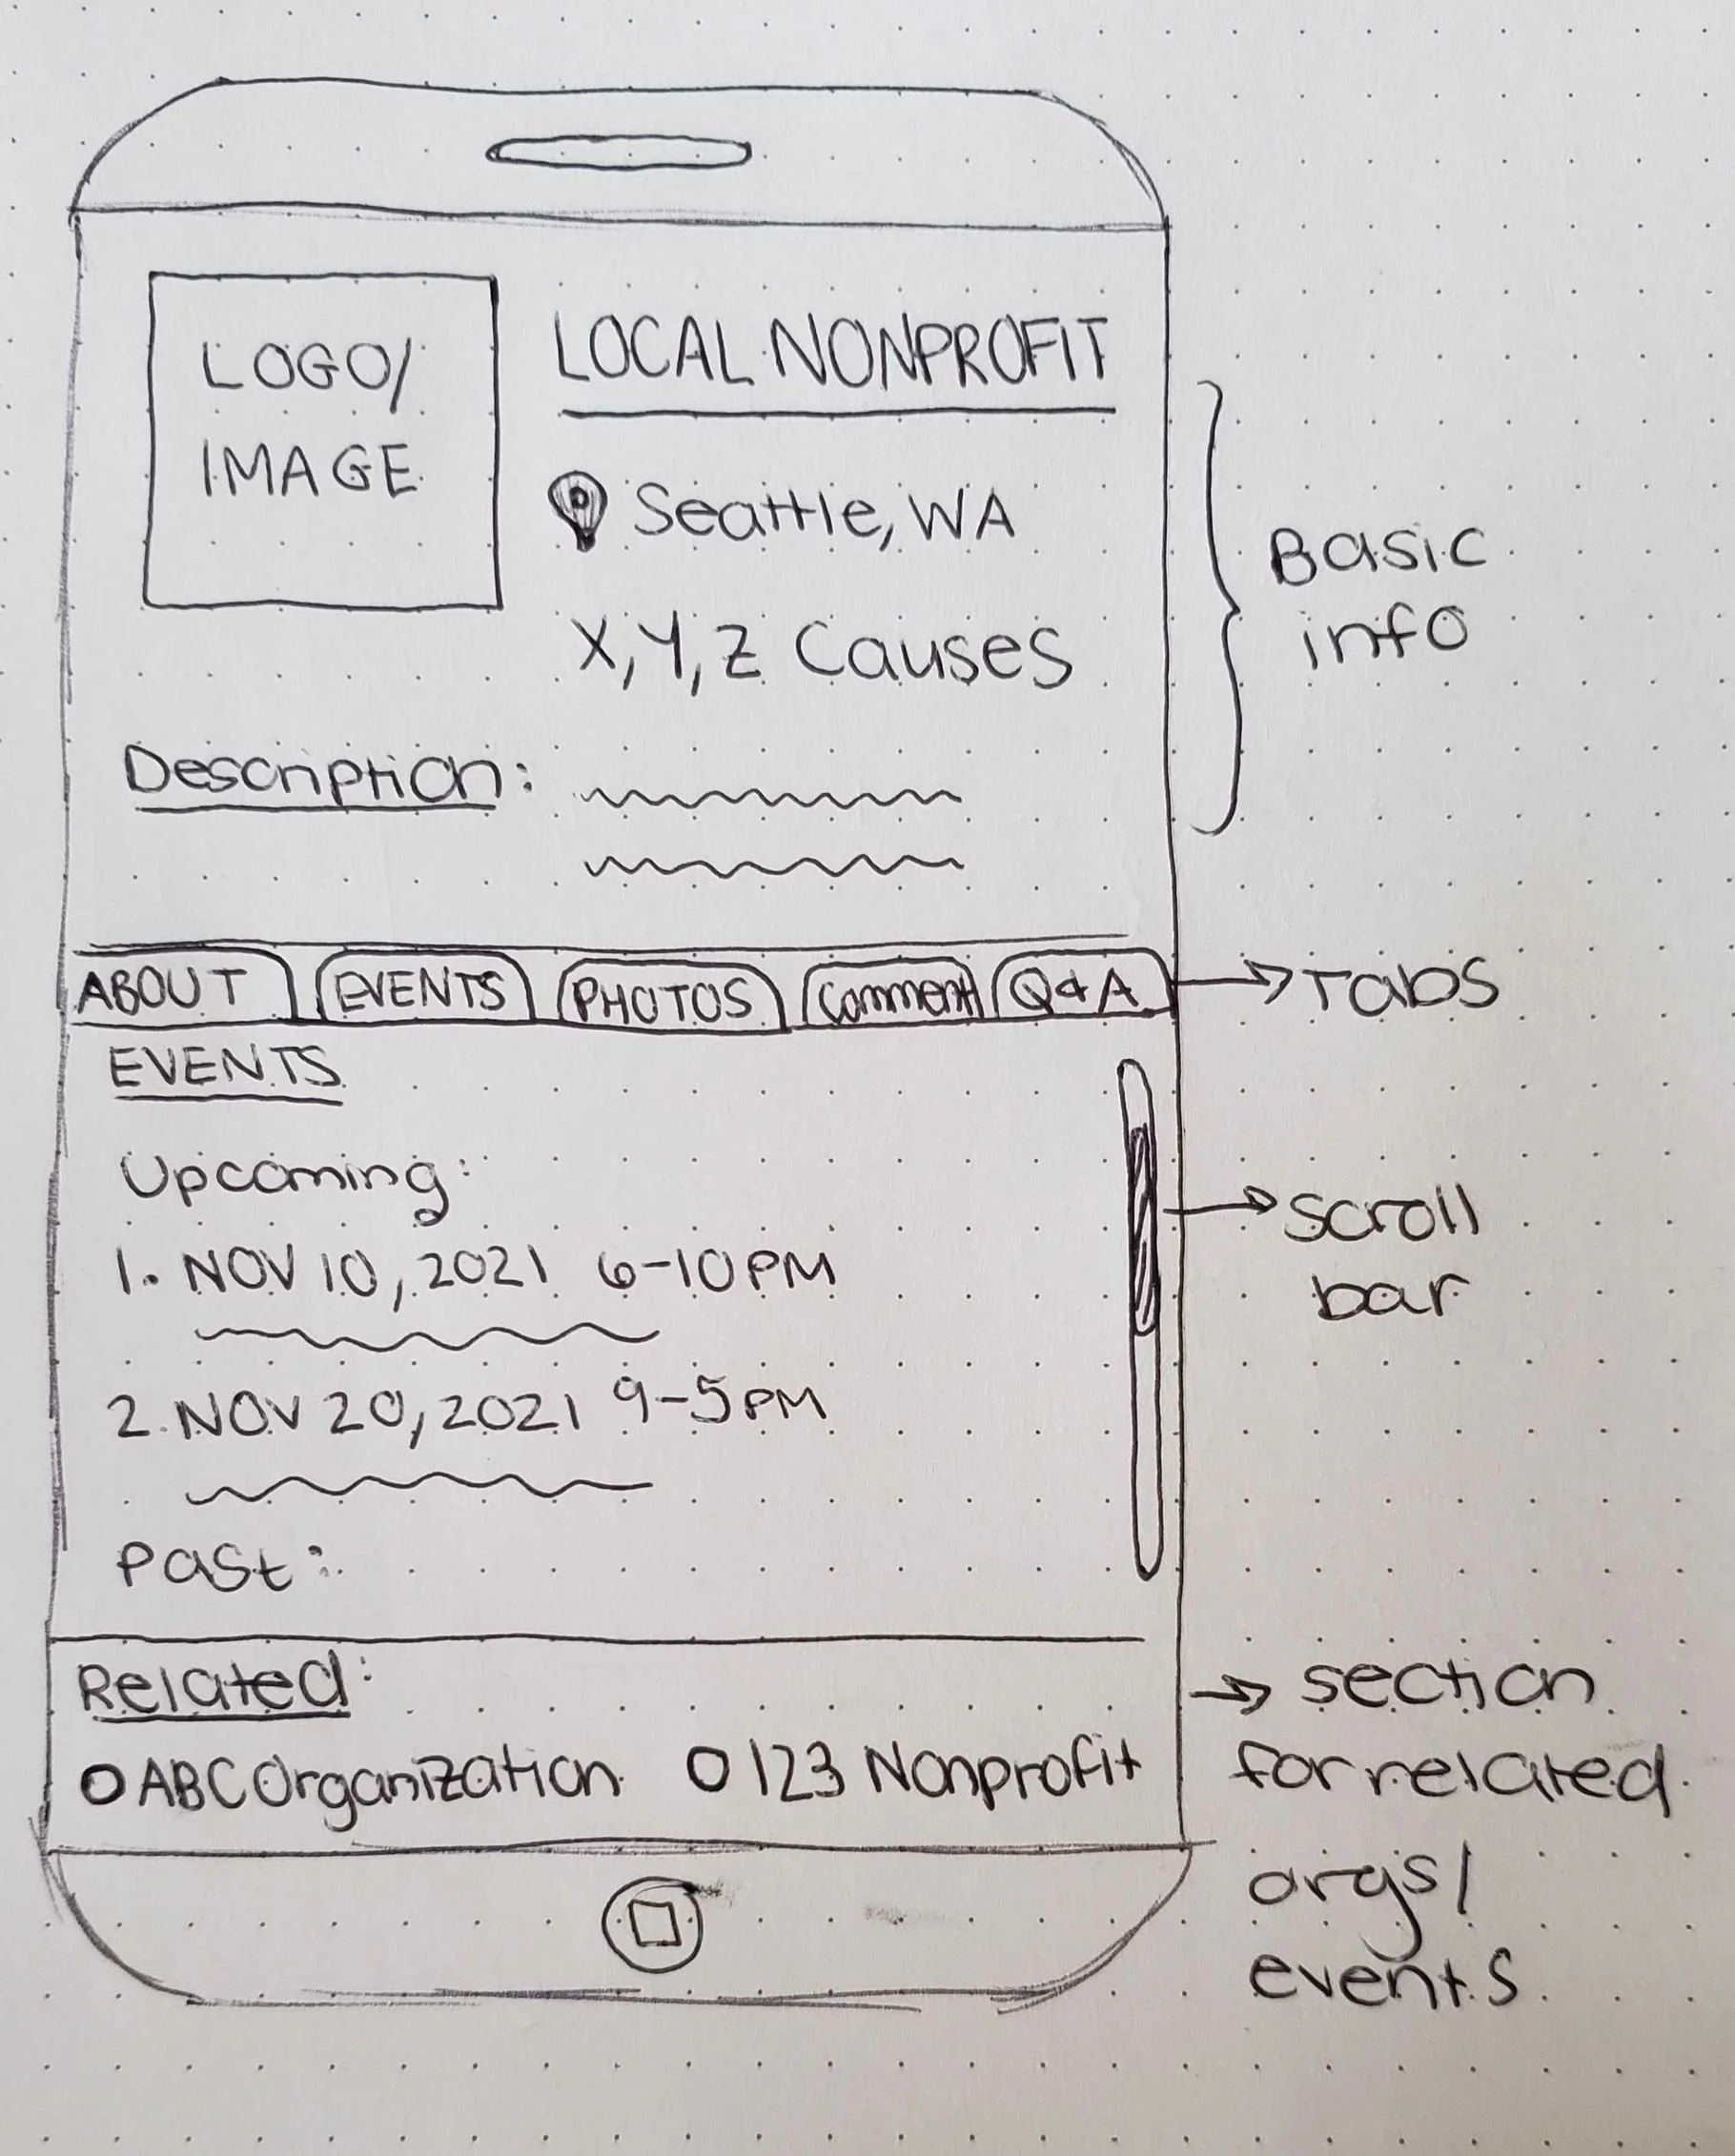 LOGO/
IMAGE
LOCAL NONPROFIT
Seattle, WA
X, Y, Z Causes
Description:
Basic
info
ABOUT
EVENTS
PHOTOS
Comment
Q&A
Tabs
EVENTS
Upcoming:
1. NOV 10, 2021 6-10PM
2. NOV 20, 2021 9-5PM
Past:
scroll
bar
Related:
ABC Organization
123 Nonprofit
section
for related
orgs/
events